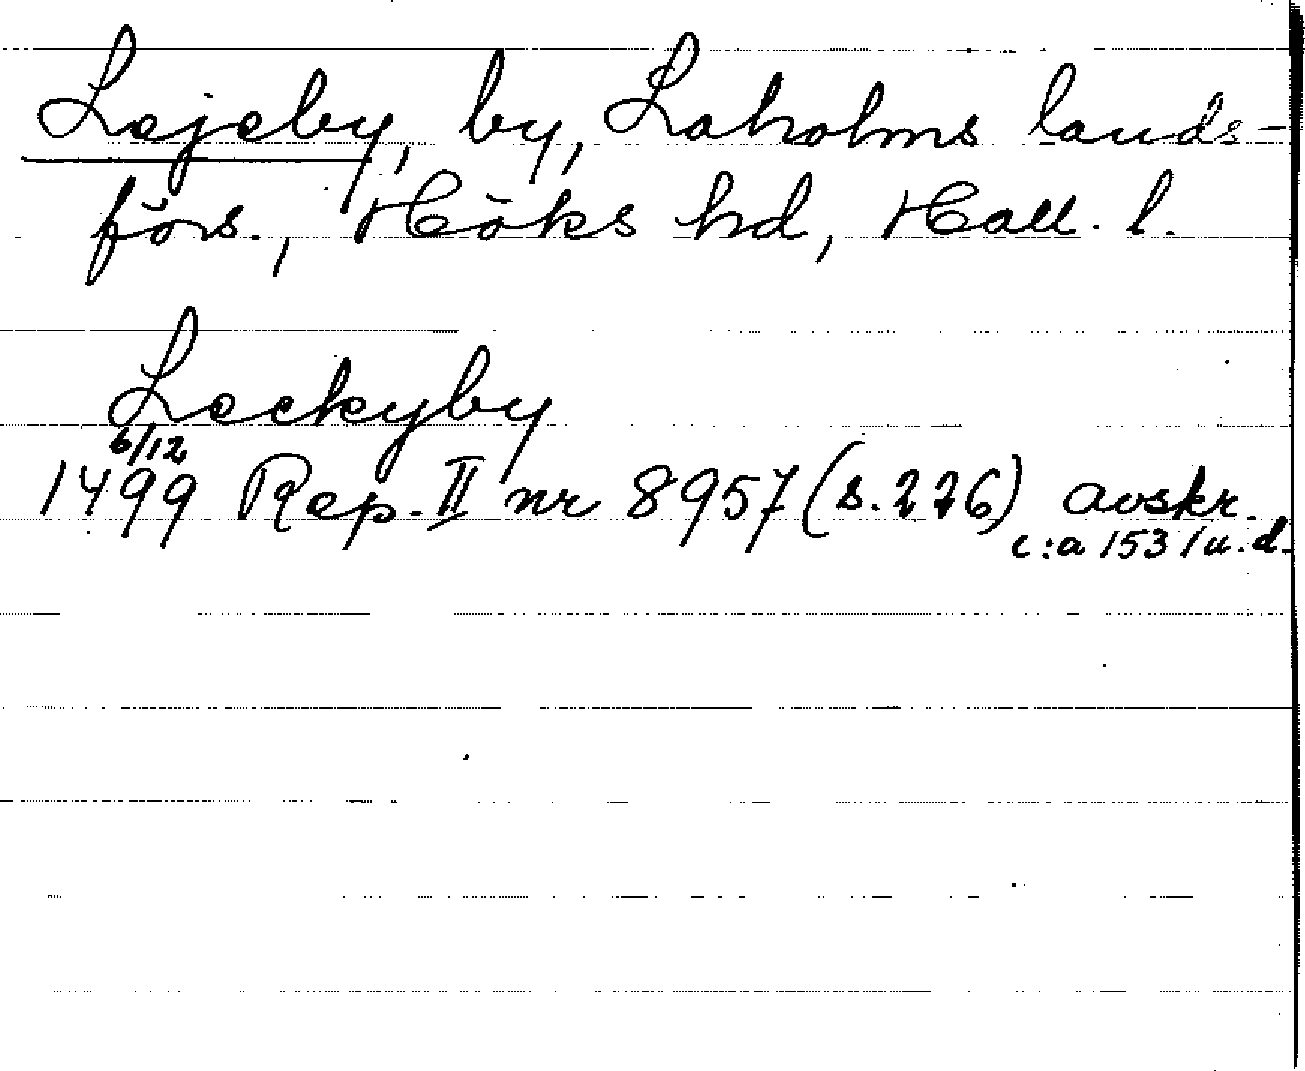 Lejeby, by, Laholms lands-
förs., Höks hd, Hall. l.
Leckyby
6/12
1499 Rep. II nr 8957 (s. 276) avskr.
c:a 1531 u. d.